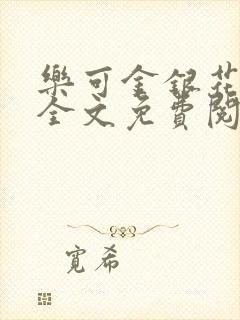 樂可金銀花
全文免費閱
寬希